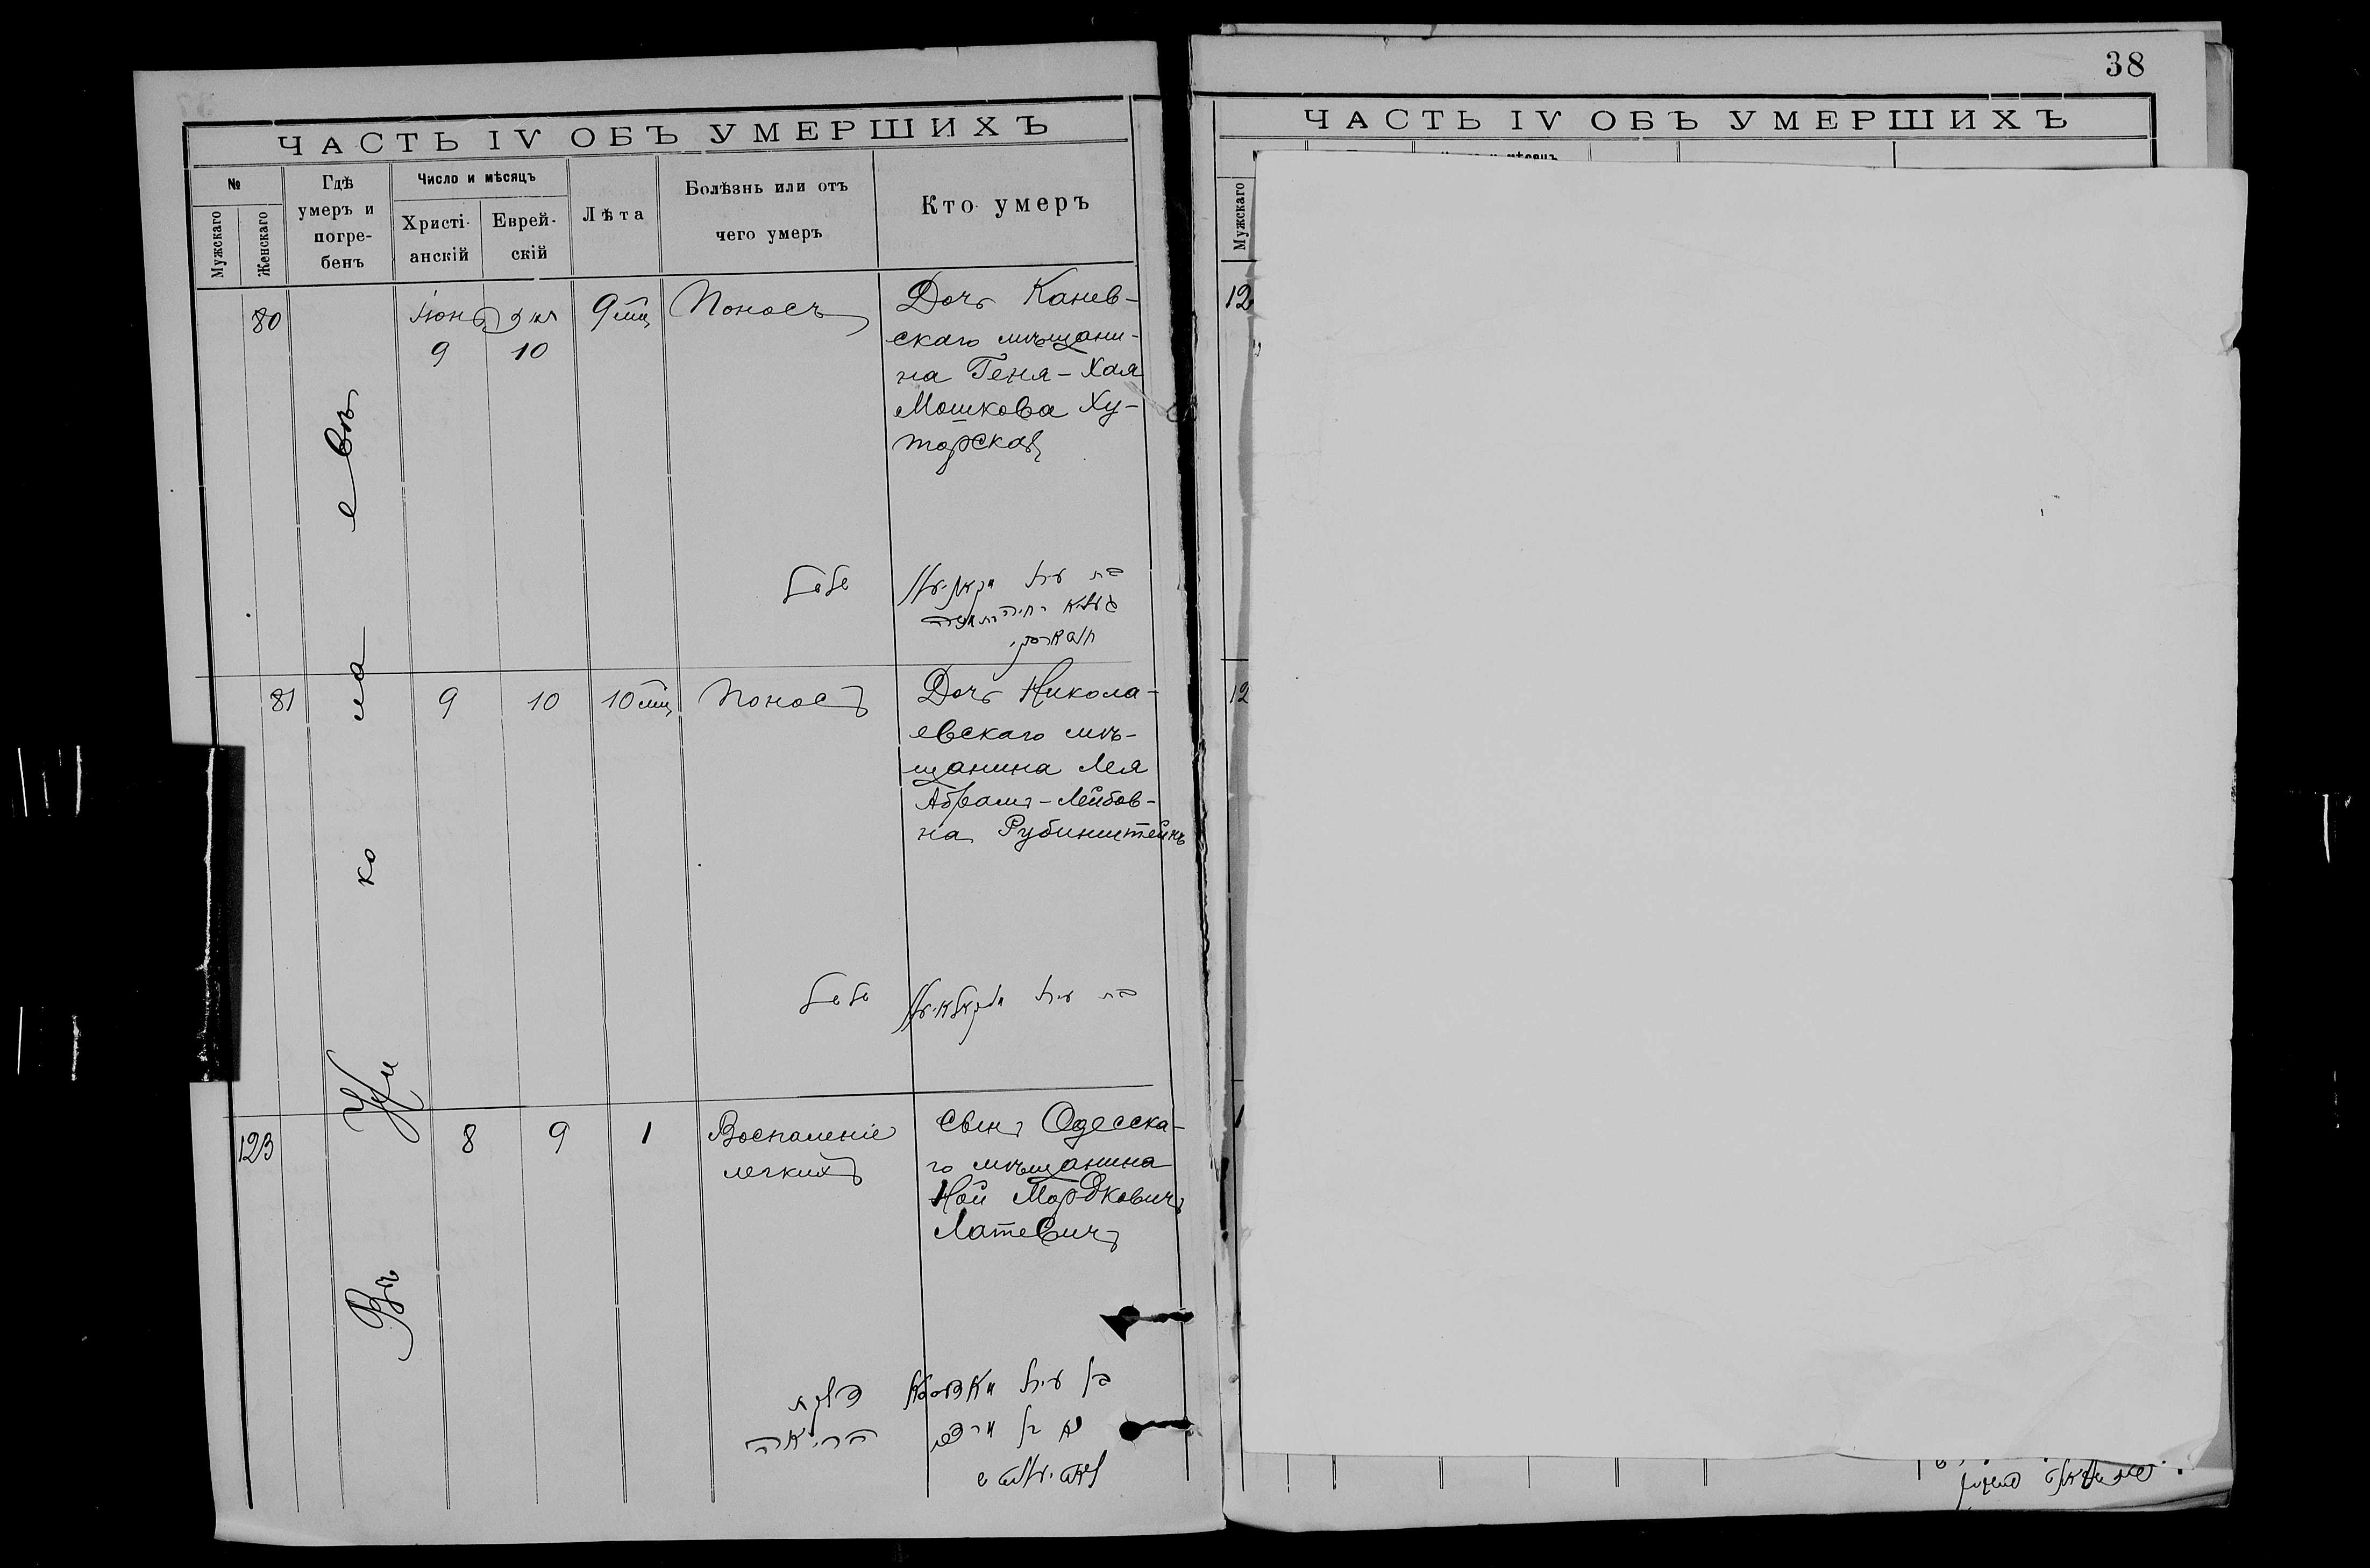 38
ЧАСТЬ IV ОБЪ УМЕРШИХЪ
№
Мужскаго
Женскаго
Гдѣ
умеръ и
погре-
бенъ
Число и мѣсяцъ
Христі-
анскій
Еврей-
скій
Лѣта
Болѣзнь или отъ
чего умеръ
Кто умеръ
Въ Николаевѣ
80
Іюнь
9
10
9 мц
Поносъ
Дочь Канев-
скаго мѣщани-
на Геня-Хая
Мошкова Ху-
торская
שלשל
בת עיר
81
9
10
10 мц
Поносъ
Дочь Никола-
евскаго мѣ-
щанина Лея
Абрамъ-Лейбов-
на Рубинштейнъ
שלשל
בת עיר
123
8
9
1
Воспаленіе
легкихъ
Сынъ Одесска-
го мѣщанина
Ной Мордковичъ
Латевичъ
דלקת
הריאה
בן עיר
נח בן
ЧАСТЬ IV ОБЪ УМЕРШИХЪ
Мужскаго
12
12
1